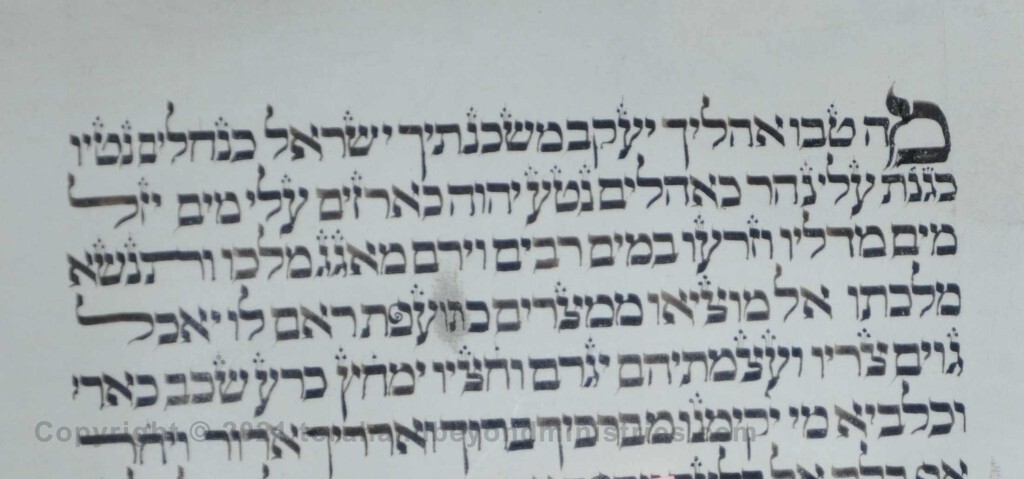 מה טבו אהליך יעקב משכנתיך ישראל כנחלים נטיו
כגנת עלי נהר כאהלים נטע יהוה כארזים עלי מים יזל
מים מדליו וזרעו במים רבים וירם מאגג מלכו ותנשא
מלכתו אל מוציאו ממצרים כתועפת ראם לו יאכל
גוים צריו ועצמתיהם יגרם וחציו ימחץ כרע שכב כארי
וכלביא מי יקימנו מברכיך ברוך וארריך ארור ויחר
אף בלק אל
Copyright ©